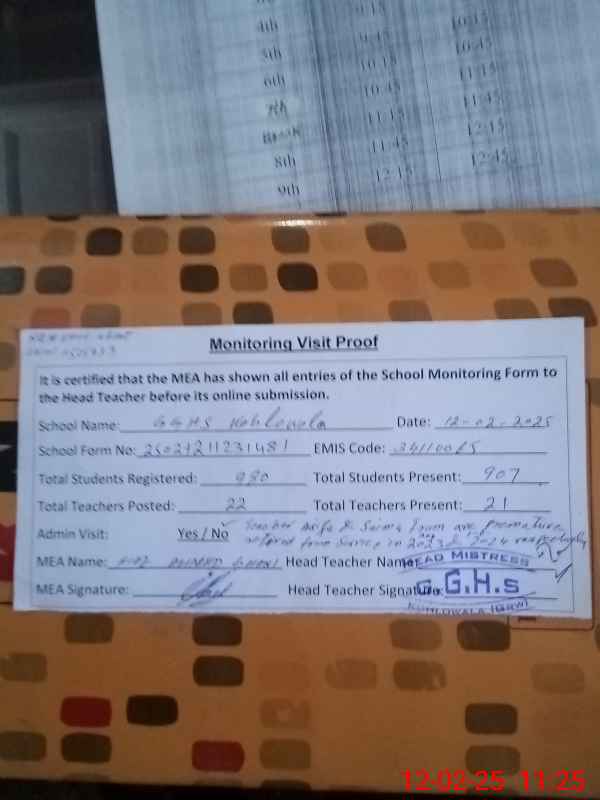 4th 9:45 10:15
5th 10:15 10:45
6th 10:45 11:15
7th 11:15 11:45
Break 11:45 12:15
8th 12:15 12:45
9th
Monitoring Visit Proof
It is certified that the MEA has shown all entries of the School Monitoring Form to
the Head Teacher before its online submission.
School Name: G.G.H.S Kohlowala Date: 12-02-2025
School Form No: EMIS Code:
Total Students Registered: 980 Total Students Present: 907
Total Teachers Posted: 22 Total Teachers Present: 21
Admin Visit: Yes / No Teacher & are premature
retired from Service in 2023 & 2024 respectively
MEA Name: Head Teacher Name:
HEAD MISTRESS
MEA Signature: Head Teacher Signature:
G.G.H.s
KOHLOWALA (GRW)
12-02-25 11:25